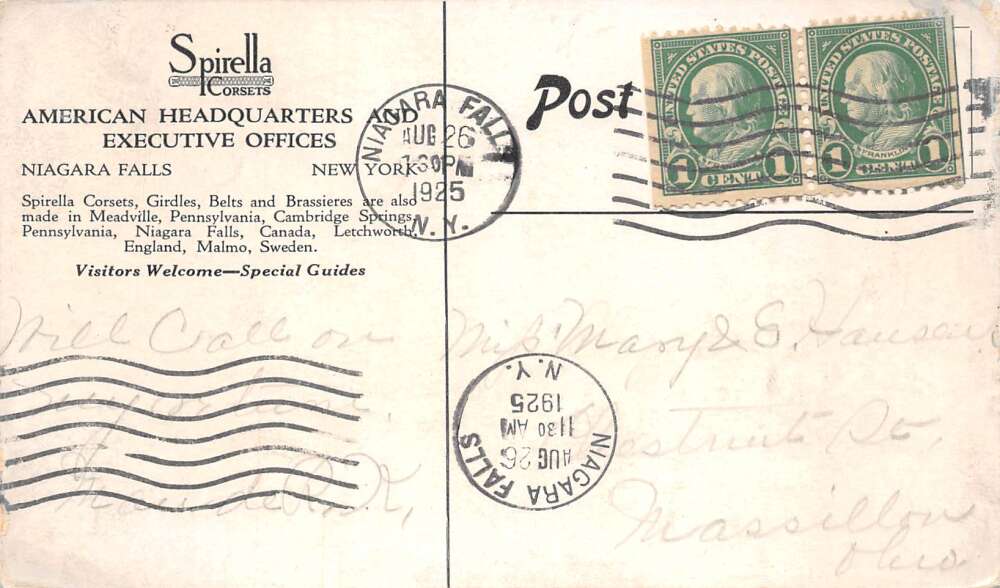 Spirella
CORSETS
AMERICAN HEADQUARTERS AND
EXECUTIVE OFFICES
NIAGARA FALLS NEW YORK
Spirella Corsets, Girdles, Belts and Brassieres are also
made in Meadville, Pennsylvania, Cambridge Springs,
Pennsylvania, Niagara Falls, Canada, Letchworth,
England, Malmo, Sweden.
Visitors Welcome—Special Guides
Will Call on
Maude R. K,
NIAGARA FALLS
AUG 26
7 30 PM
1925
N. Y.
Post
UNITED STATES POSTAGE
FRANKLIN
1 CENT 1
UNITED STATES POSTAGE
FRANKLIN
1 CENT 1
Miss Mary E. Hansen
St,
Massillon
Ohio
NIAGARA FALLS
AUG 26
11 30 AM
1925
N. Y.